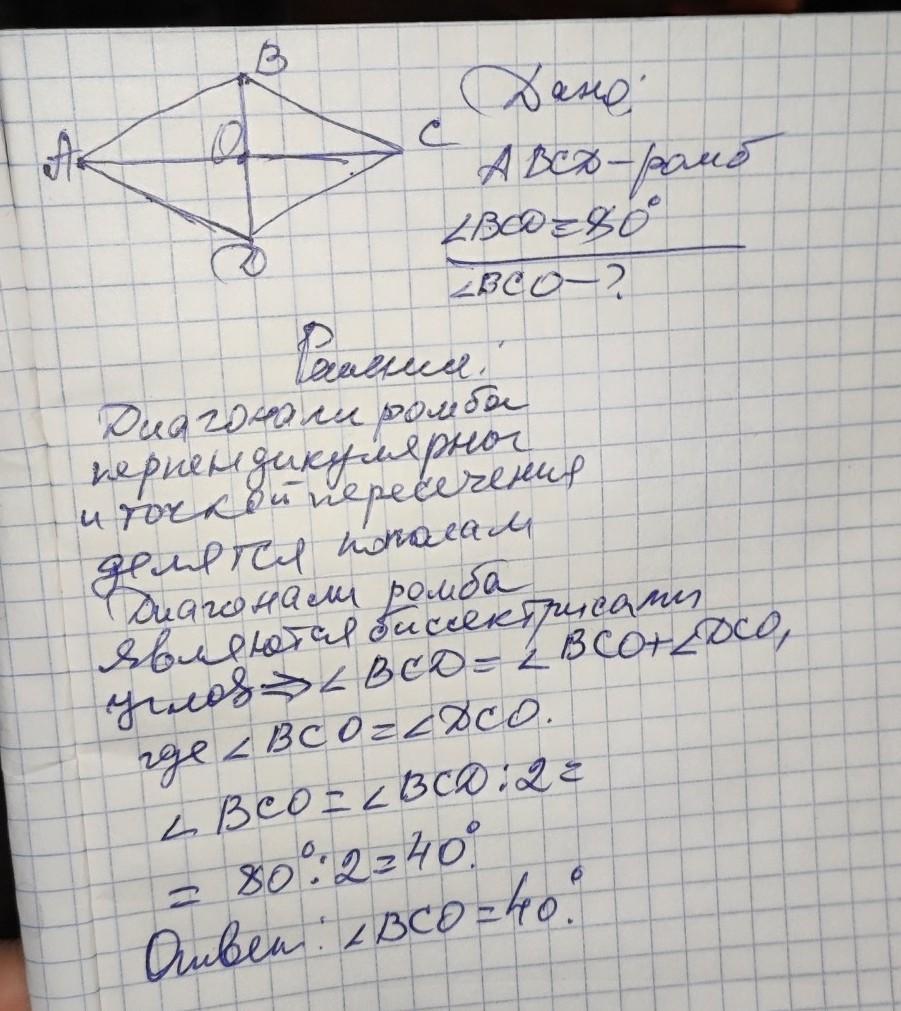 B
A
O
C
D
Дано:
ABCD - ромб
∠BCD = 80°
∠BCO - ?
Решение:
Диагонали ромба
перпендикулярны
и точкой пересечения
делятся пополам
Диагонали ромба
являются биссектрисами
углов ⇒ ∠BCD = ∠BCO + ∠DCO,
где ∠BCO = ∠DCO.
∠BCO = ∠BCD : 2 =
= 80° : 2 = 40°.
Ответ: ∠BCO = 40°.